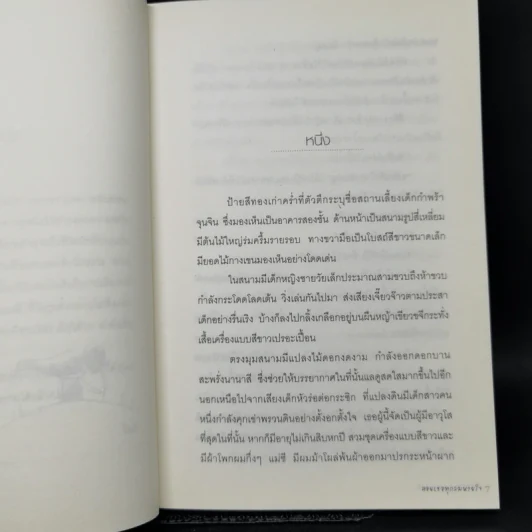 หนึ่ง
ป้ายสีทองเก่าคร่ำที่ตัวตึกระบุชื่อสถานเลี้ยงเด็กกำพร้า
จุนจิน ซึ่งมองเห็นเป็นอาคารสองชั้น ด้านหน้าเป็นสนามรูปสี่เหลี่ยม
มีต้นไม้ใหญ่ร่มครึ้มรายรอบ ทางขวามือเป็นโบสถ์สีขาวขนาดเล็ก
มียอดไม้กางเขนมองเห็นอย่างโดดเด่น
ในสนามมีเด็กหญิงชายวัยเล็กประมาณสามขวบถึงห้าขวบ
กำลังกระโดดโลดเต้น วิ่งเล่นกันไปมา ส่งเสียงเจี๊ยวจ๊าวตามประสา
เด็กอย่างรื่นเริง บ้างก็ลงไปกลิ้งเกลือกอยู่บนผืนหญ้าเขียวขจีกระทั่ง
เสื้อเครื่องแบบสีขาวเปรอะเปื้อน
ตรงมุมสนามมีแปลงไม้ดอกงดงาม กำลังออกดอกบาน
สะพรั่งนานาสี ซึ่งช่วยให้บรรยากาศในที่นั้นแลดูสดใสมากขึ้นไปอีก
นอกเหนือไปจากเสียงเด็กหัวร่อต่อกระซิก ที่แปลงดินมีเด็กสาวคน
หนึ่งกำลังคุกเข่าพรวนดินอย่างตั้งอกตั้งใจ เธอผู้นี้จัดเป็นผู้มีอาวุโส
ที่สุดในที่นั้น หากก็มีอายุไม่เกินสิบหกปี สวมชุดเครื่องแบบสีขาวและ
มีผ้าโพกผมกึ่งๆ แม่ชี มีผมม้าโผล่พ้นผ้าออกมาปรกระหน้าผาก
7